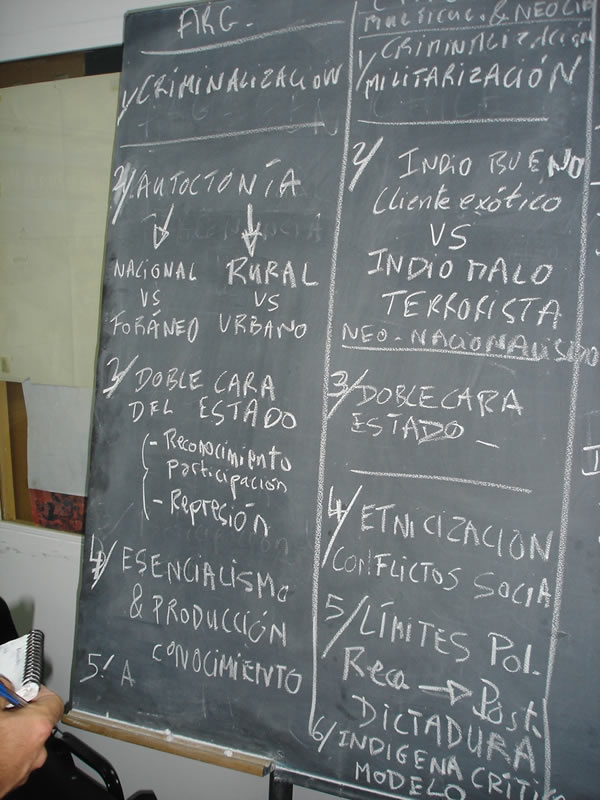 ARG.
1/ CRIMINALIZACION
2/ AUTOCTONÍA
NACIONAL RURAL
VS VS
FORÁNEO URBANO
2/ DOBLE CARA
DEL ESTADO
- Reconocimiento
participación
- Represión
4/ ESENCIALISMO
& PRODUCCIÓN
CONOCIMIENTO
5/ A
& NEOLIB
1/ CRIMINALIZACIÓN
MILITARIZACIÓN
2/ INDIO BUENO
Cliente exótico
VS
INDIO MALO
TERRORISTA
NEO-NACIONALISMO
3/ DOBLE CARA
ESTADO -
4/ ETNICIZACIÓN
CONFLICTOS SOCIA
5/ LÍMITES POL.
Reca → Post.
DICTADURA
6/ INDIGENA CRITIC
MODELO